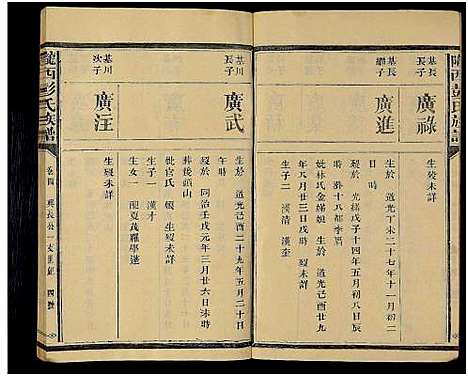 隴西彭氏族譜
基長
長子
廣祿
生歿未詳
基長
繼子
廣進
生於 道光丁未二十七年十一月初二
日 時
歿於 光緒戊子十四年五月初八日辰
時 葬十八都李眉
妣林氏金娣娘 生於 道光己酉廿九
年八月廿三日戌時 歿未詳
生子二 漢清 漢奎
基川
長子
廣武
生於 道光己酉二十九年五月二十日
午時
歿於 同治壬戌元年三月廿六日未時
葬後頭山
妣官氏 娘 生歿未詳
生子一 漢才
生女一
基川
次子
廣汪
生歿未詳
隴西彭氏族譜
卷四